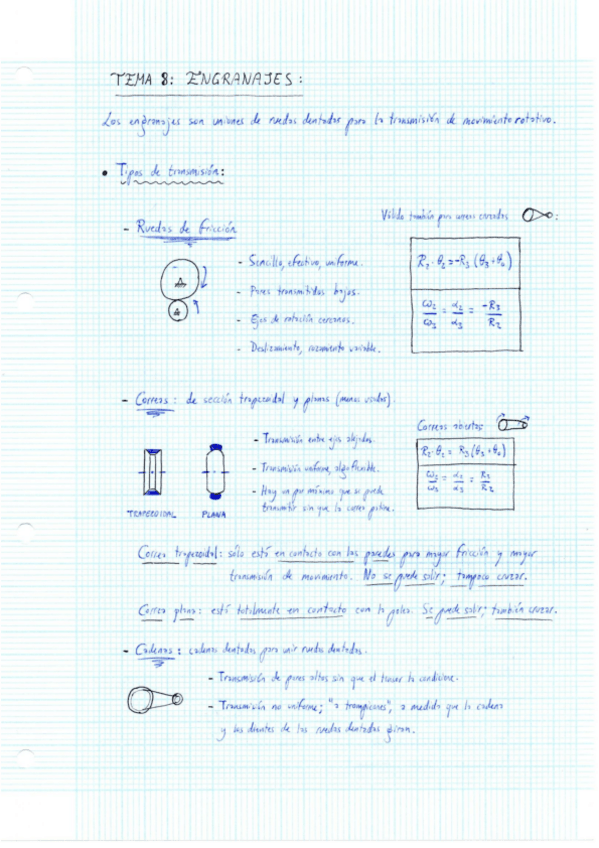 TEMA 8: ENGRANAJES:
Los engranajes son uniones de ruedas dentadas para la transmisión de movimiento rotativo.
• Tipos de transmisión:
- Ruedas de fricción
Válido también para correas cruzadas :
- Sencillo, efectivo, uniforme.
- Pares transmitidos bajos.
- Ejes de rotación cercanos.
- Deslizamiento, rozamiento variable.
R₂·θ₂ = -R₃(θ₃+θ₀)
ω₂/ω₃ = α₂/α₃ = -R₃/R₂
- Correas: de sección trapezoidal y planas (menos usadas).
TRAPEZOIDAL
PLANA
- Transmisión entre ejes alejados.
- Transmisión uniforme, algo flexible.
- Hay un par máximo que se puede
transmitir sin que la correa patine.
Correas abiertas:
R₂·θ₂ = R₃(θ₃+θ₀)
ω₂/ω₃ = α₂/α₃ = R₃/R₂
Correa trapezoidal: sólo está en contacto con las paredes para mayor fricción y mayor
transmisión de movimiento. No se puede salir; tampoco cruzar.
Correa plana: está totalmente en contacto con la polea. Se puede salir; también cruzar.
- Cadenas: cadenas dentadas para unir ruedas dentadas.
- Transmisión de pares altos sin que el lo condicione.
- Transmisión no uniforme; "a trompicones", a medida que la cadena
y los dientes de las ruedas dentadas giran.